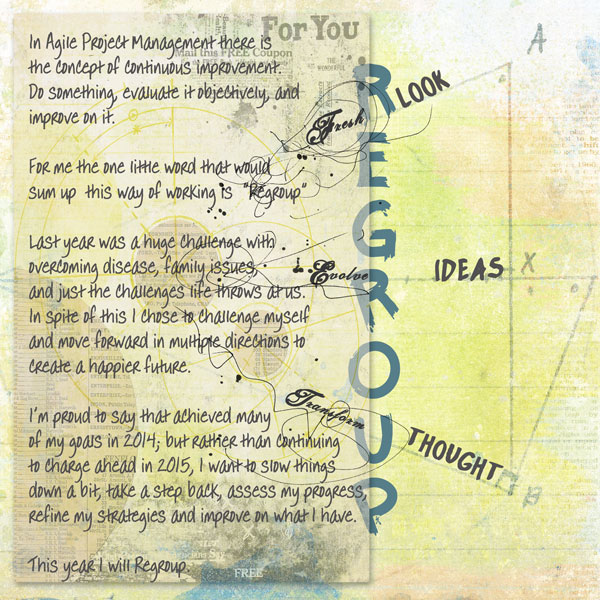 For You
Mail this FREE Coupon
THE
WONDERFUL
In Agile Project Management there is
the concept of continuous improvement.
Do something, evaluate it objectively, and
improve on it.
For me the one little word that would
sum up this way of working is "Regroup"
Last year was a huge challenge with
overcoming disease, family issues,
and just the challenges life throws at us.
In spite of this I chose to challenge myself
and move forward in multiple directions to
create a happier future.
I'm proud to say that achieved many
of my goals in 2014; but rather than continuing
to charge ahead in 2015, I want to slow things
down a bit, take a step back, assess my progress,
refine my strategies and improve on what I have.
This year I will Regroup.
FREE
REGROUP
Fresh LOOK
Evolve IDEAS
Transform THOUGHT
A
X
B